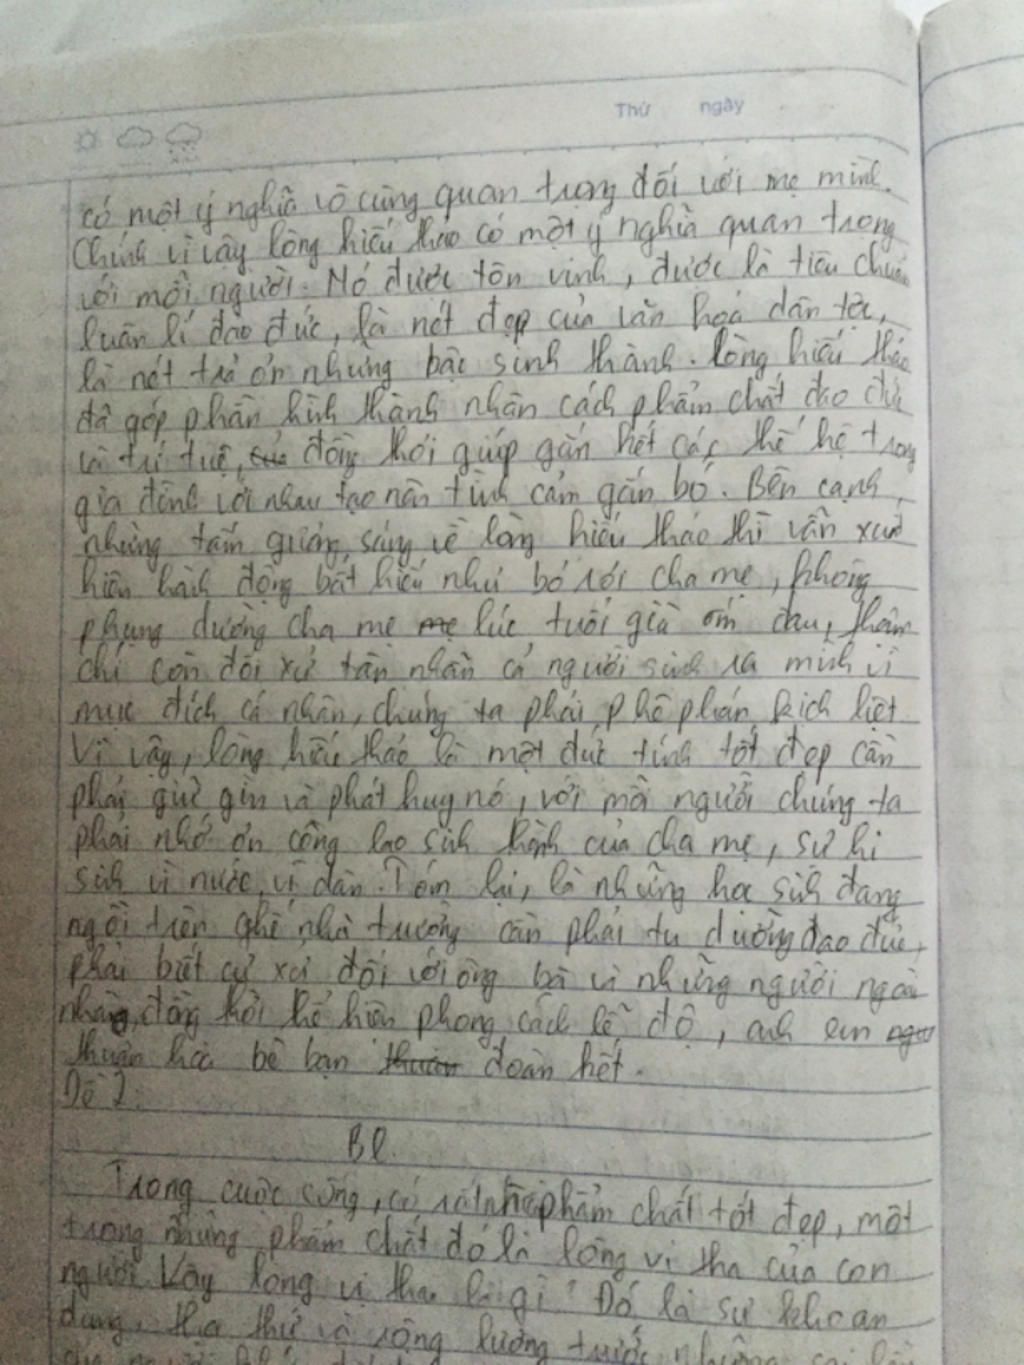 Thứ ngày
có một ý nghĩa vô cùng quan trọng đối với mẹ mình.
Chính vì vậy lòng hiếu thảo có một ý nghĩa quan trọng
với mỗi người. Nó được tôn vinh, được là tiêu chuẩn
luân lí đạo đức, là nét đẹp của văn hoá dân tộc,
là nét trả ơn những bậc sinh thành. lòng hiếu thảo
đã góp phần hình thành nhân cách phẩm chất đạo đức
và trí tuệ, đồng thời giúp gắn kết các thế hệ trong
gia đình với nhau tạo nên tình cảm gắn bó. Bên cạnh
những tấm gương sáng về lòng hiếu thảo thì vẫn xuất
hiện hành động bất hiếu như bỏ rơi cha mẹ, không
phụng dưỡng cha mẹ lúc tuổi già ốm đau, thậm
chí còn đối xử tàn nhẫn cả người sinh ra mình vì
mục đích cá nhân, chúng ta phải phê phán kịch liệt
Vì vậy, lòng hiếu thảo là một đức tính tốt đẹp cần
phải giữ gìn và phát huy nó, với mỗi người chúng ta
phải nhớ ơn công lao sinh thành của cha mẹ, sự hi
sinh vì nước, vì dân. Tóm lại, là những học sinh đang
ngồi trên ghế nhà trường cần phải tu dưỡng đạo đức,
phải biết cư xử đối với ông bà và những người ngoài
đồng thời thể hiện phong cách lễ độ, anh em
thuận hoà bè bạn đoàn kết.
Đề 2:
Bl.
Trong cuộc sống, có rất nhiều phẩm chất tốt đẹp, một
trong những phẩm chất đó là lòng vị tha của con
người. Vậy lòng vị tha là gì? Đó là sự khoan
dung, tha thứ và rộng lượng trước những